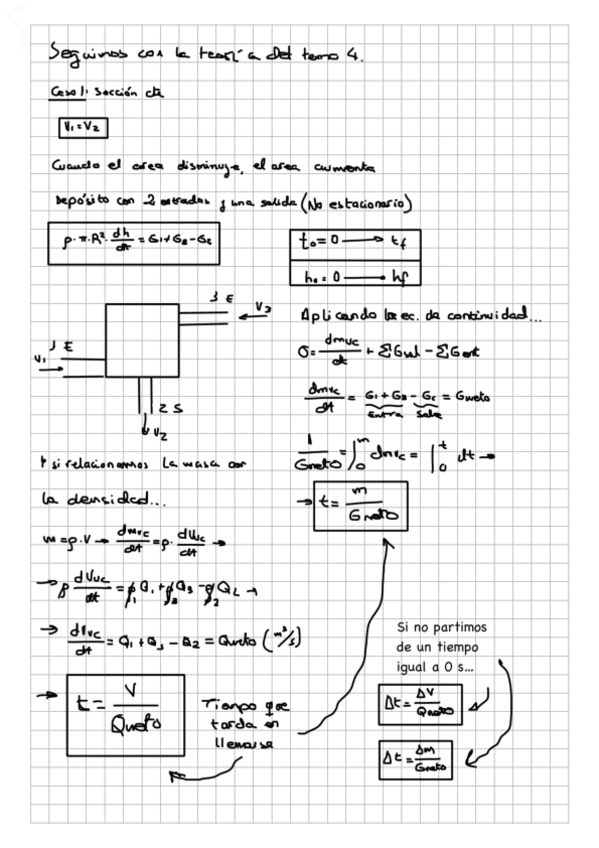 Seguimos con la teoría del tema 4.
Caso 1: Sección cte
V₁ = V₂
Cuando el area disminuye, el area aumenta
Depósito con 2 entradas y una salida (No estacionario)
ρ·π·R²·dh/dt = G₁+G₃-G₂
t₀=0 → tf
h₀=0 → hf
3 E
V₃
1 E
V₁
2 S
V₂
Aplicando la ec. de continuidad...
0 = dmvc/dt + ΣGsal - ΣGent
dmvc/dt = G₁ + G₃ - G₂ = Gneto
Entra Sale
1/Gneto = ∫₀ᵐ dmvc = ∫₀ᵗ dt →
→ t = m/Gneto
Y si relacionamos la masa con
la densidad...
m = ρ·V → dmvc/dt = ρ·dVvc/dt →
→ ρ dVvc/dt = ρ₁Q₁ + ρ₃Q₃ - ρ₂Q₂ →
→ dVvc/dt = Q₁ + Q₃ - Q₂ = Qneto (m³/s)
→ t = V/Qneto
Tiempo que
tarda en
llenarse
Si no partimos
de un tiempo
igual a 0 s...
Δt = ΔV/Qneto
Δt = Δm/Gneto